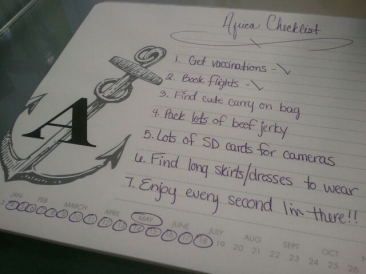 Africa Checklist
1. Get vaccinations -
2. Book flights -
3. Find cute carry on bag
4. Pack lots of beef jerky
5. Lots of SD cards for cameras
6. Find long skirts/dresses to wear
7. Enjoy every second I'm there!!
A
JAN FEB MARCH APRIL MAY JUNE JULY AUG SEPT OCT
18 19 20 21 22 23 24 25 26